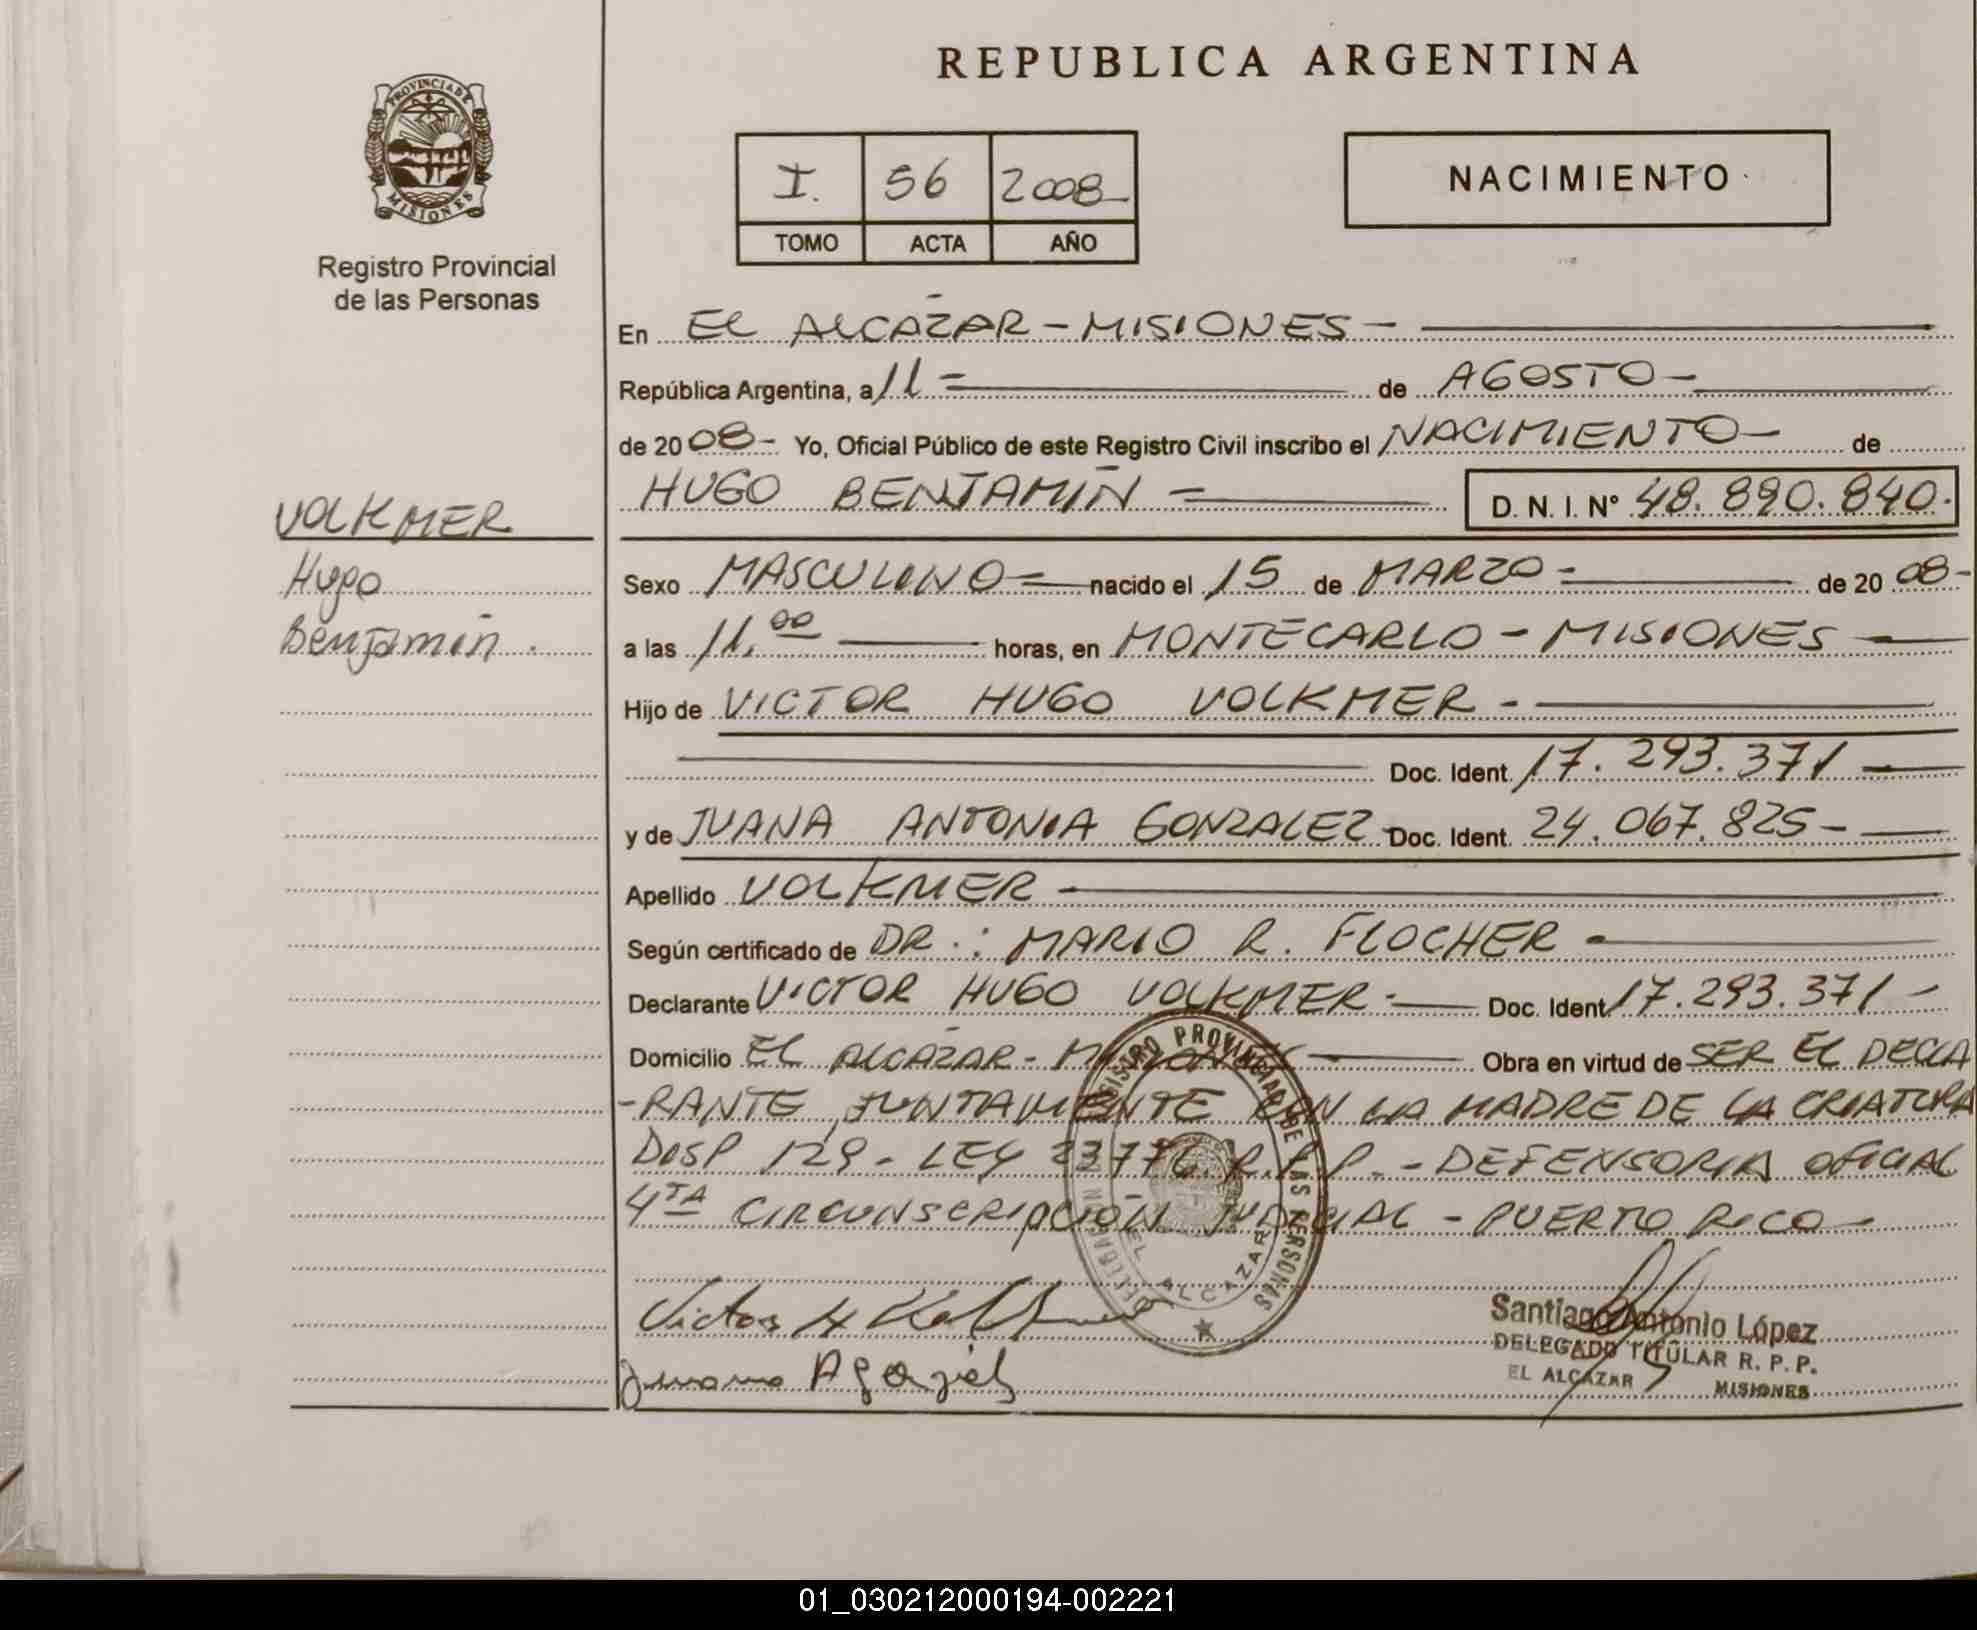 REPUBLICA ARGENTINA
PROVINCIA DE MISIONES
Registro Provincial
de las Personas
I. 56 2008-
TOMO ACTA AÑO
NACIMIENTO
En EL ALCÁZAR - MISIONES -
República Argentina, a 11 = de AGOSTO -
de 20 08 - Yo, Oficial Público de este Registro Civil inscribo el NACIMIENTO - de
HUGO BENJAMÍN = D. N. I. Nº 48.890.840.
VOLKMER
Hugo
Benjamín.
Sexo MASCULINO = nacido el 15 de MARZO = de 20 08 -
a las 11.00 horas, en MONTECARLO - MISIONES -
Hijo de VICTOR HUGO VOLKMER -
Doc. Ident. 17.293.371 -
y de JUANA ANTONIA GONZALEZ - Doc. Ident. 24.067.825 -
Apellido VOLKMER -
Según certificado de DR.: MARIO R. FLOCHER -
Declarante VICTOR HUGO VOLKMER - Doc. Ident 17.293.371 -
Domicilio EL ALCÁZAR - MISIONES - Obra en virtud de SER EL DECLA
-RANTE, JUNTAMENTE CON LA MADRE DE LA CRIATURA
DISP 129 - LEY 23776. R.P.P. - DEFENSORIA OFICIAL
4TA CIRCUNSCRIPCIÓN JUDICIAL - PUERTO RICO -
REGISTRO PROVINCIAL DE LAS PERSONAS
DELEGACION
EL ALCAZAR
Victor H Volkmer
Juana A Gonzalez
Santiago Antonio López
DELEGADO TITULAR R. P. P.
EL ALCAZAR MISIONES
01_030212000194-002221